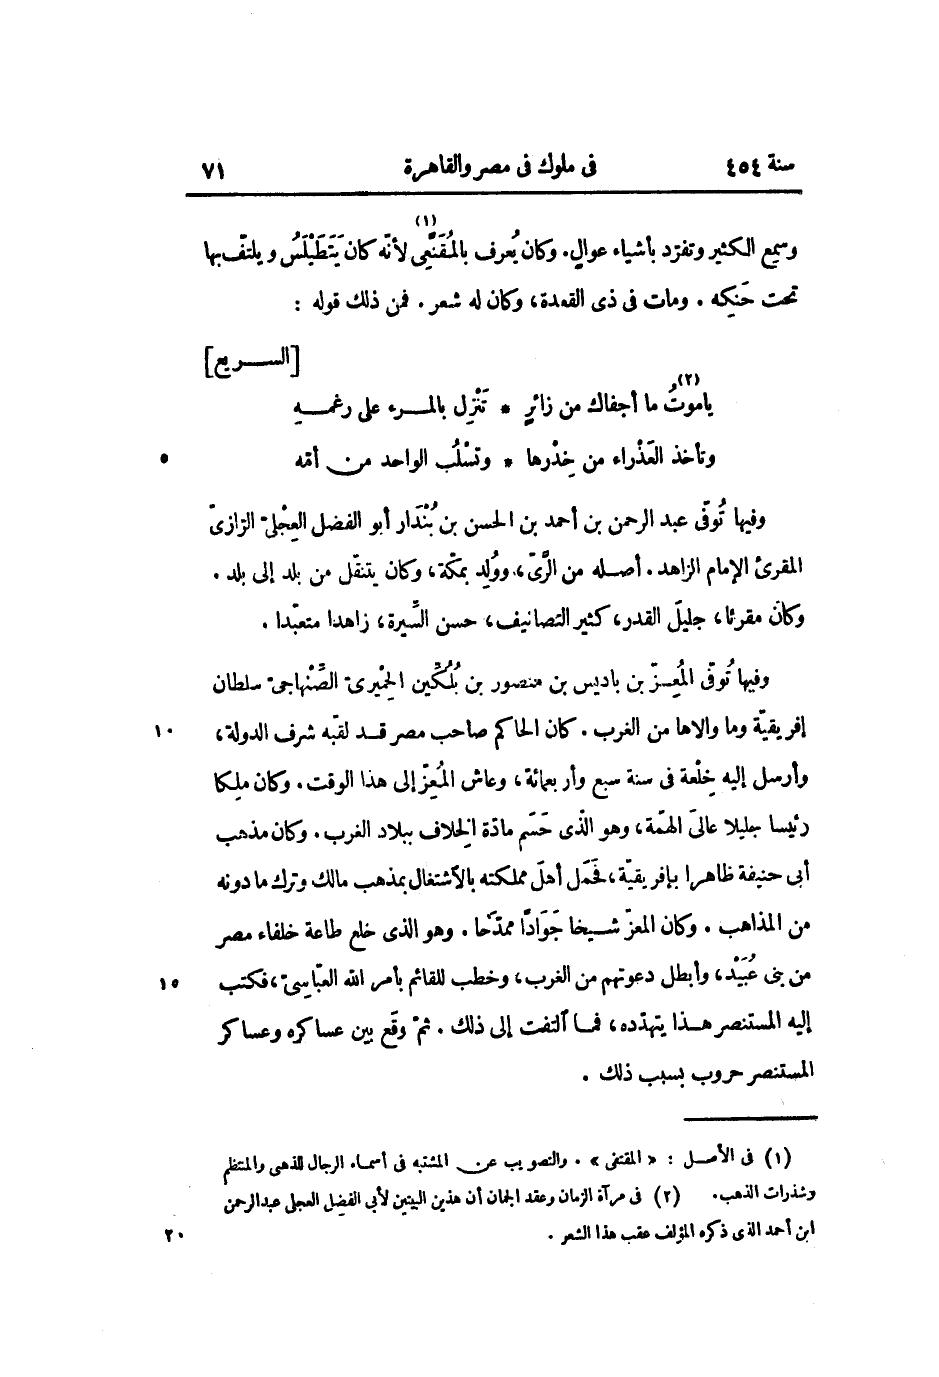 سنة ٤٥٤ فى ملوك فى مصر والقاهرة ٧١
وسمع الكثير وتفرّد بأشياء عوالٍ. وكان يُعرف بالمُقَنَّعِى (١) لأنّه كان يَتَطَيْلَسُ ويلتفّ بها
تحت حَنَكِه . ومات فى ذى القعدة، وكان له شعر . فمن ذلك قوله :
[السريع]
ياموتُ (٢) ما أجفاك من زائرٍ * تَنْزِل بالمرء على رغمه
وتأخذ العَذْراء من خِدْرها * وتسْلُب الواحد من أمّه ٥
وفيها تُوفّى عبد الرحمن بن أحمد بن الحسن بن بُنْدَار أبو الفضل العِجْلىّ الرّازىّ
المقرئ الإمام الزاهد . أصله من الرَّىّ، ووُلِد بمكّة، وكان يتنقّل من بلد إلى بلد .
وكان مقرئا، جليلَ القدر، كثير التصانيف، حسن السِّيرة، زاهدا متعبّدا .
وفيها تُوفّى المُعِزّ بن باديس بن منصور بن بُلُكِّين الحِمْيرىّ الصِّنْهاجىّ سلطان
إفريقيّة وما والاها من الغرب . كان الحاكم صاحب مصر قد لقّبه شرف الدولة، ١٠
وأرسل إليه خِلْعة فى سنة سبع وأربعمائة، وعاش المُعِزّ إلى هذا الوقت . وكان ملِكا
رئيسا جليلا عالىَ الهمّة، وهو الّذى حَسَم مادّة الخلاف ببلاد الغرب . وكان مذهب
أبى حنيفة ظاهرا بإفريقيّة، فحَمَل أهلَ مملكته بالاشتغال بمذهب مالك وترك ما دونه
من المذاهب . وكان المعزّ شيخا جَوَادًا ممدّحا . وهو الذى خلع طاعة خلفاء مصر
من بنى عُبَيْد، وأبطل دعوتهم من الغرب، وخطب للقائم بأمر الله العبّاسىّ، فكتب ١٥
إليه المستنصر هذا يتهدّده، فما ٱلتفت إلى ذلك . ثمّ وقَع بين عساكره وعساكر
المستنصر حروب بسبب ذلك .
(١) فى الأصل : «المقتفى» . والتصويب عن المشتبه فى أسماء الرجال للذهبى والمنتظم
وشذرات الذهب. (٢) فى مرآة الزمان وعقد الجمان أن هذين البيتين لأبى الفضل العجلى عبد الرحمن
ابن أحمد الذى ذكره المؤلف عقب هذا الشعر . ٢٠